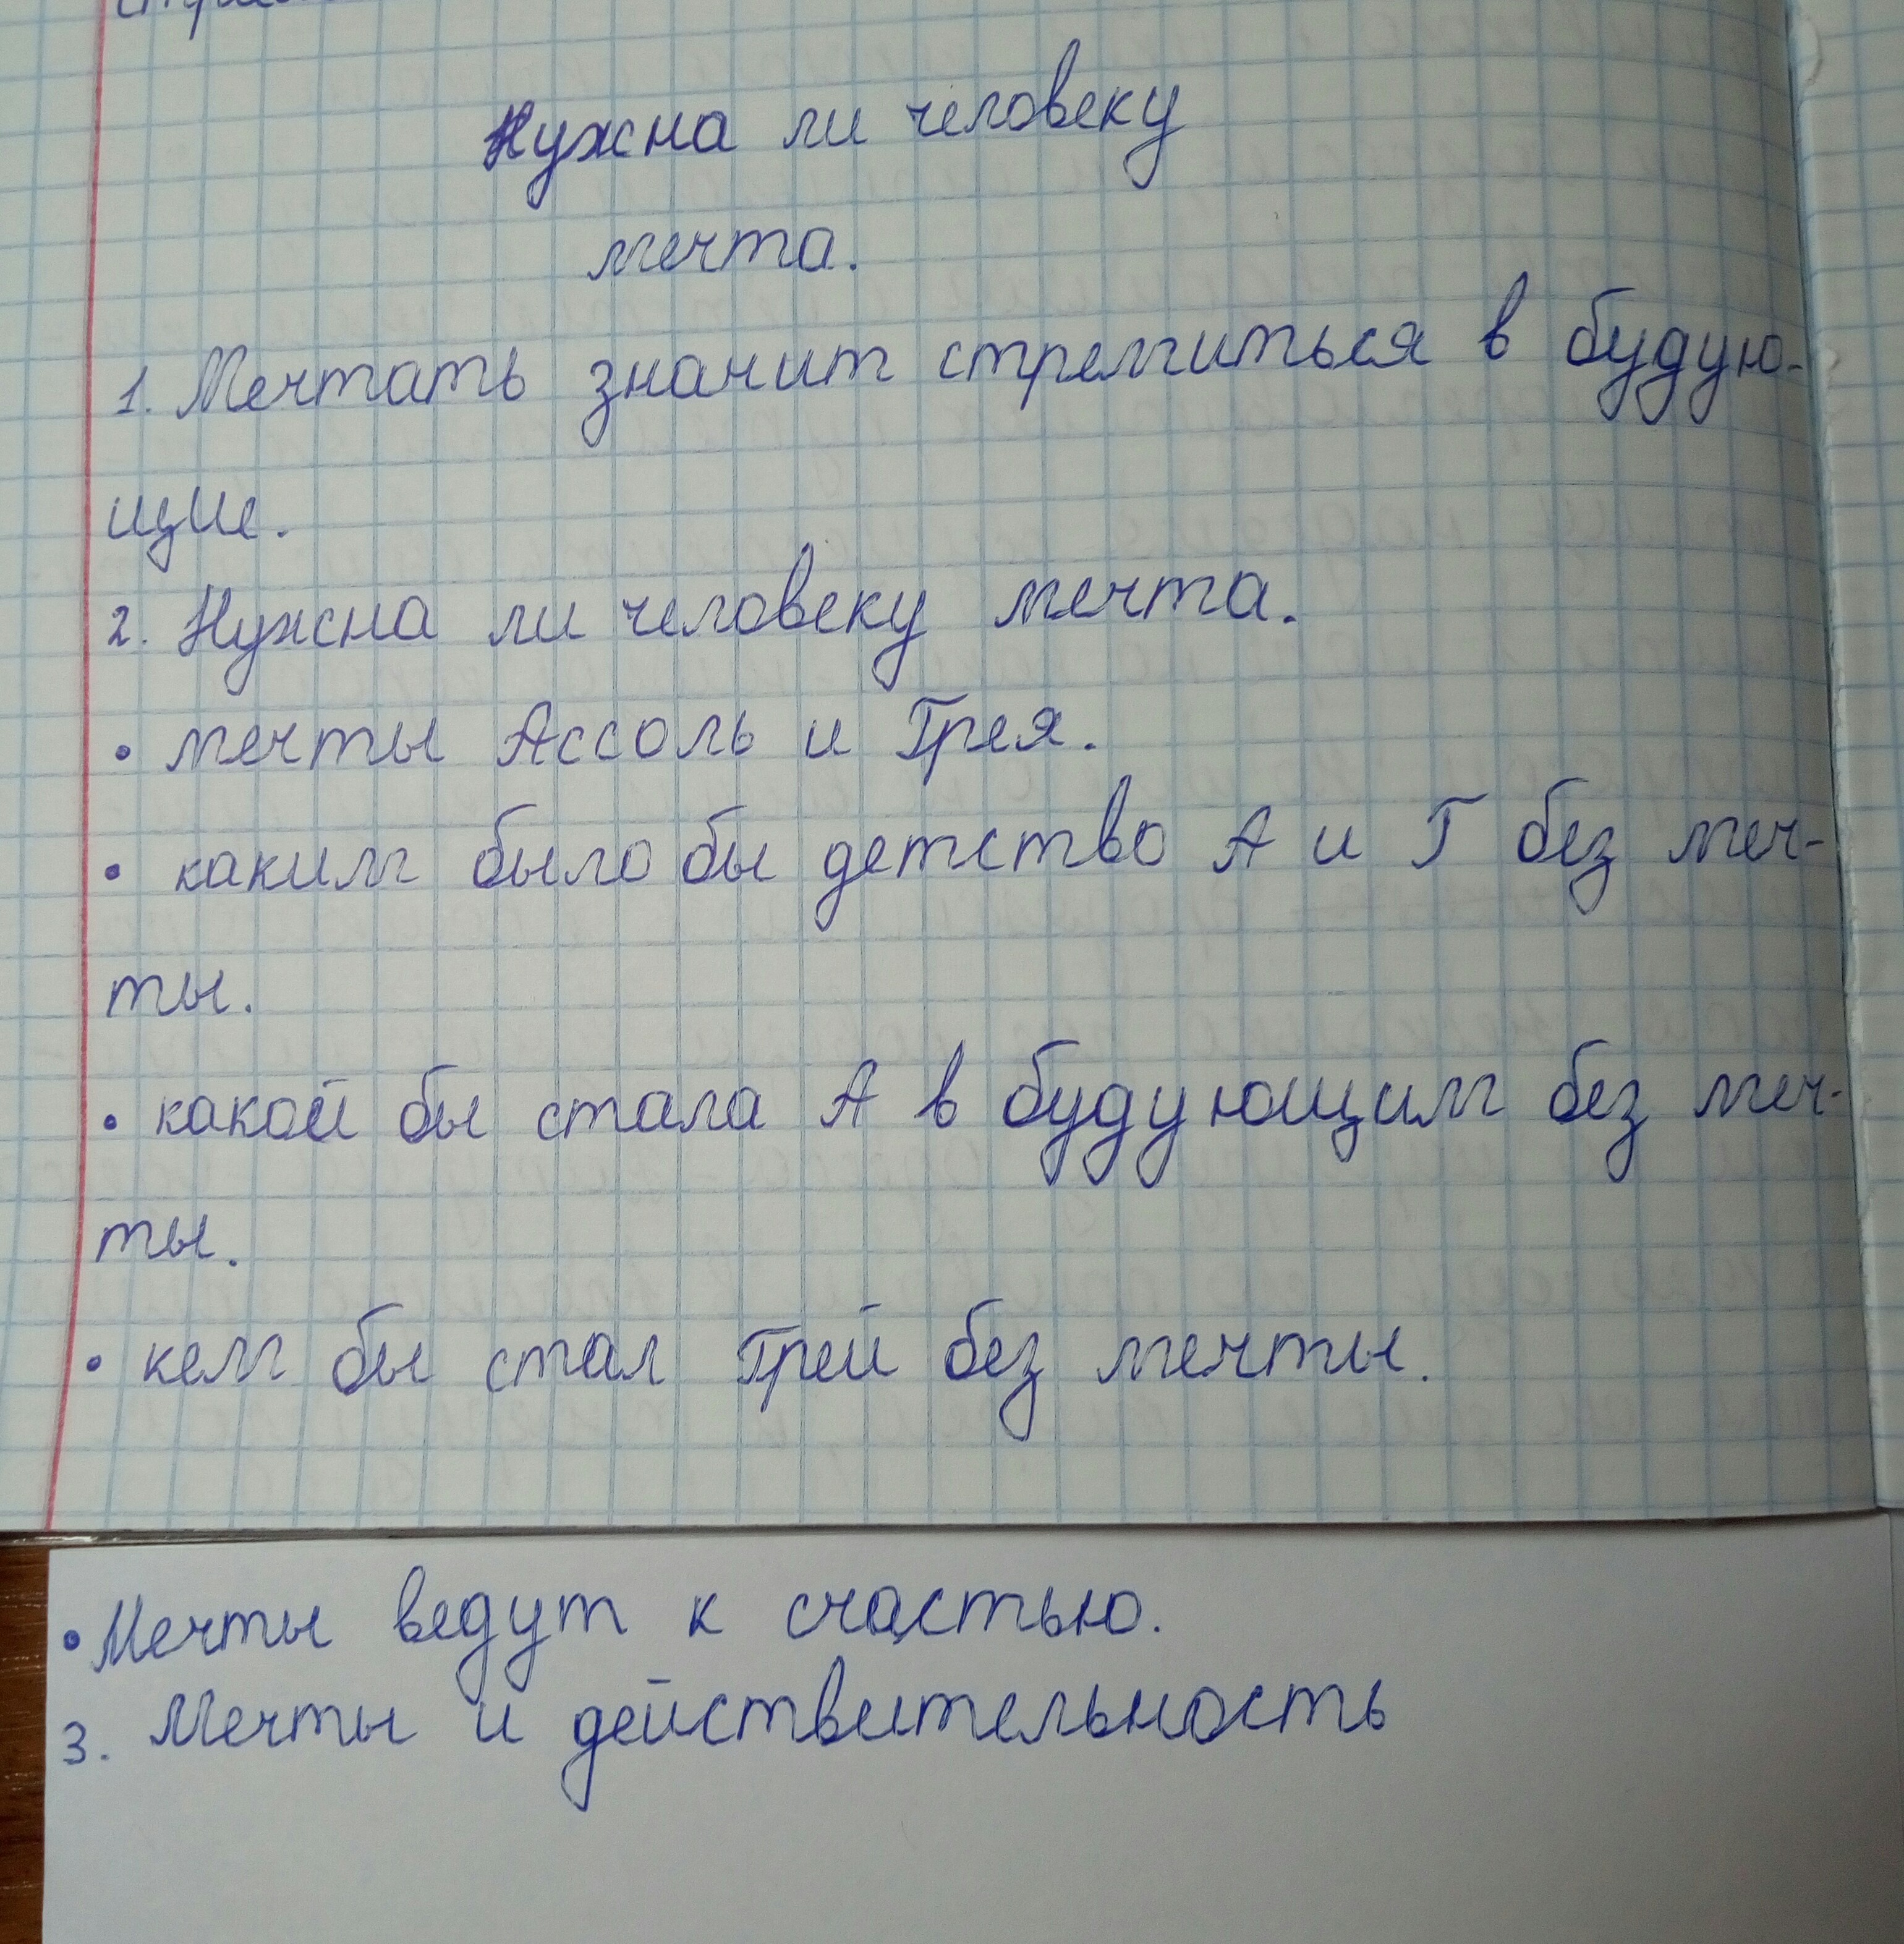 Нужна ли человеку
мечта.
1. Мечтать значит стремиться в будую-
щие.
2. Нужна ли человеку мечта.
• мечты Ассоль и Грея.
• каким было бы детство А и Г без меч-
ты.
• какой бы стала А в будующим без меч-
ты.
• кем бы стал Грей без мечты.
• Мечты ведут к счастью.
3. Мечты и действительность